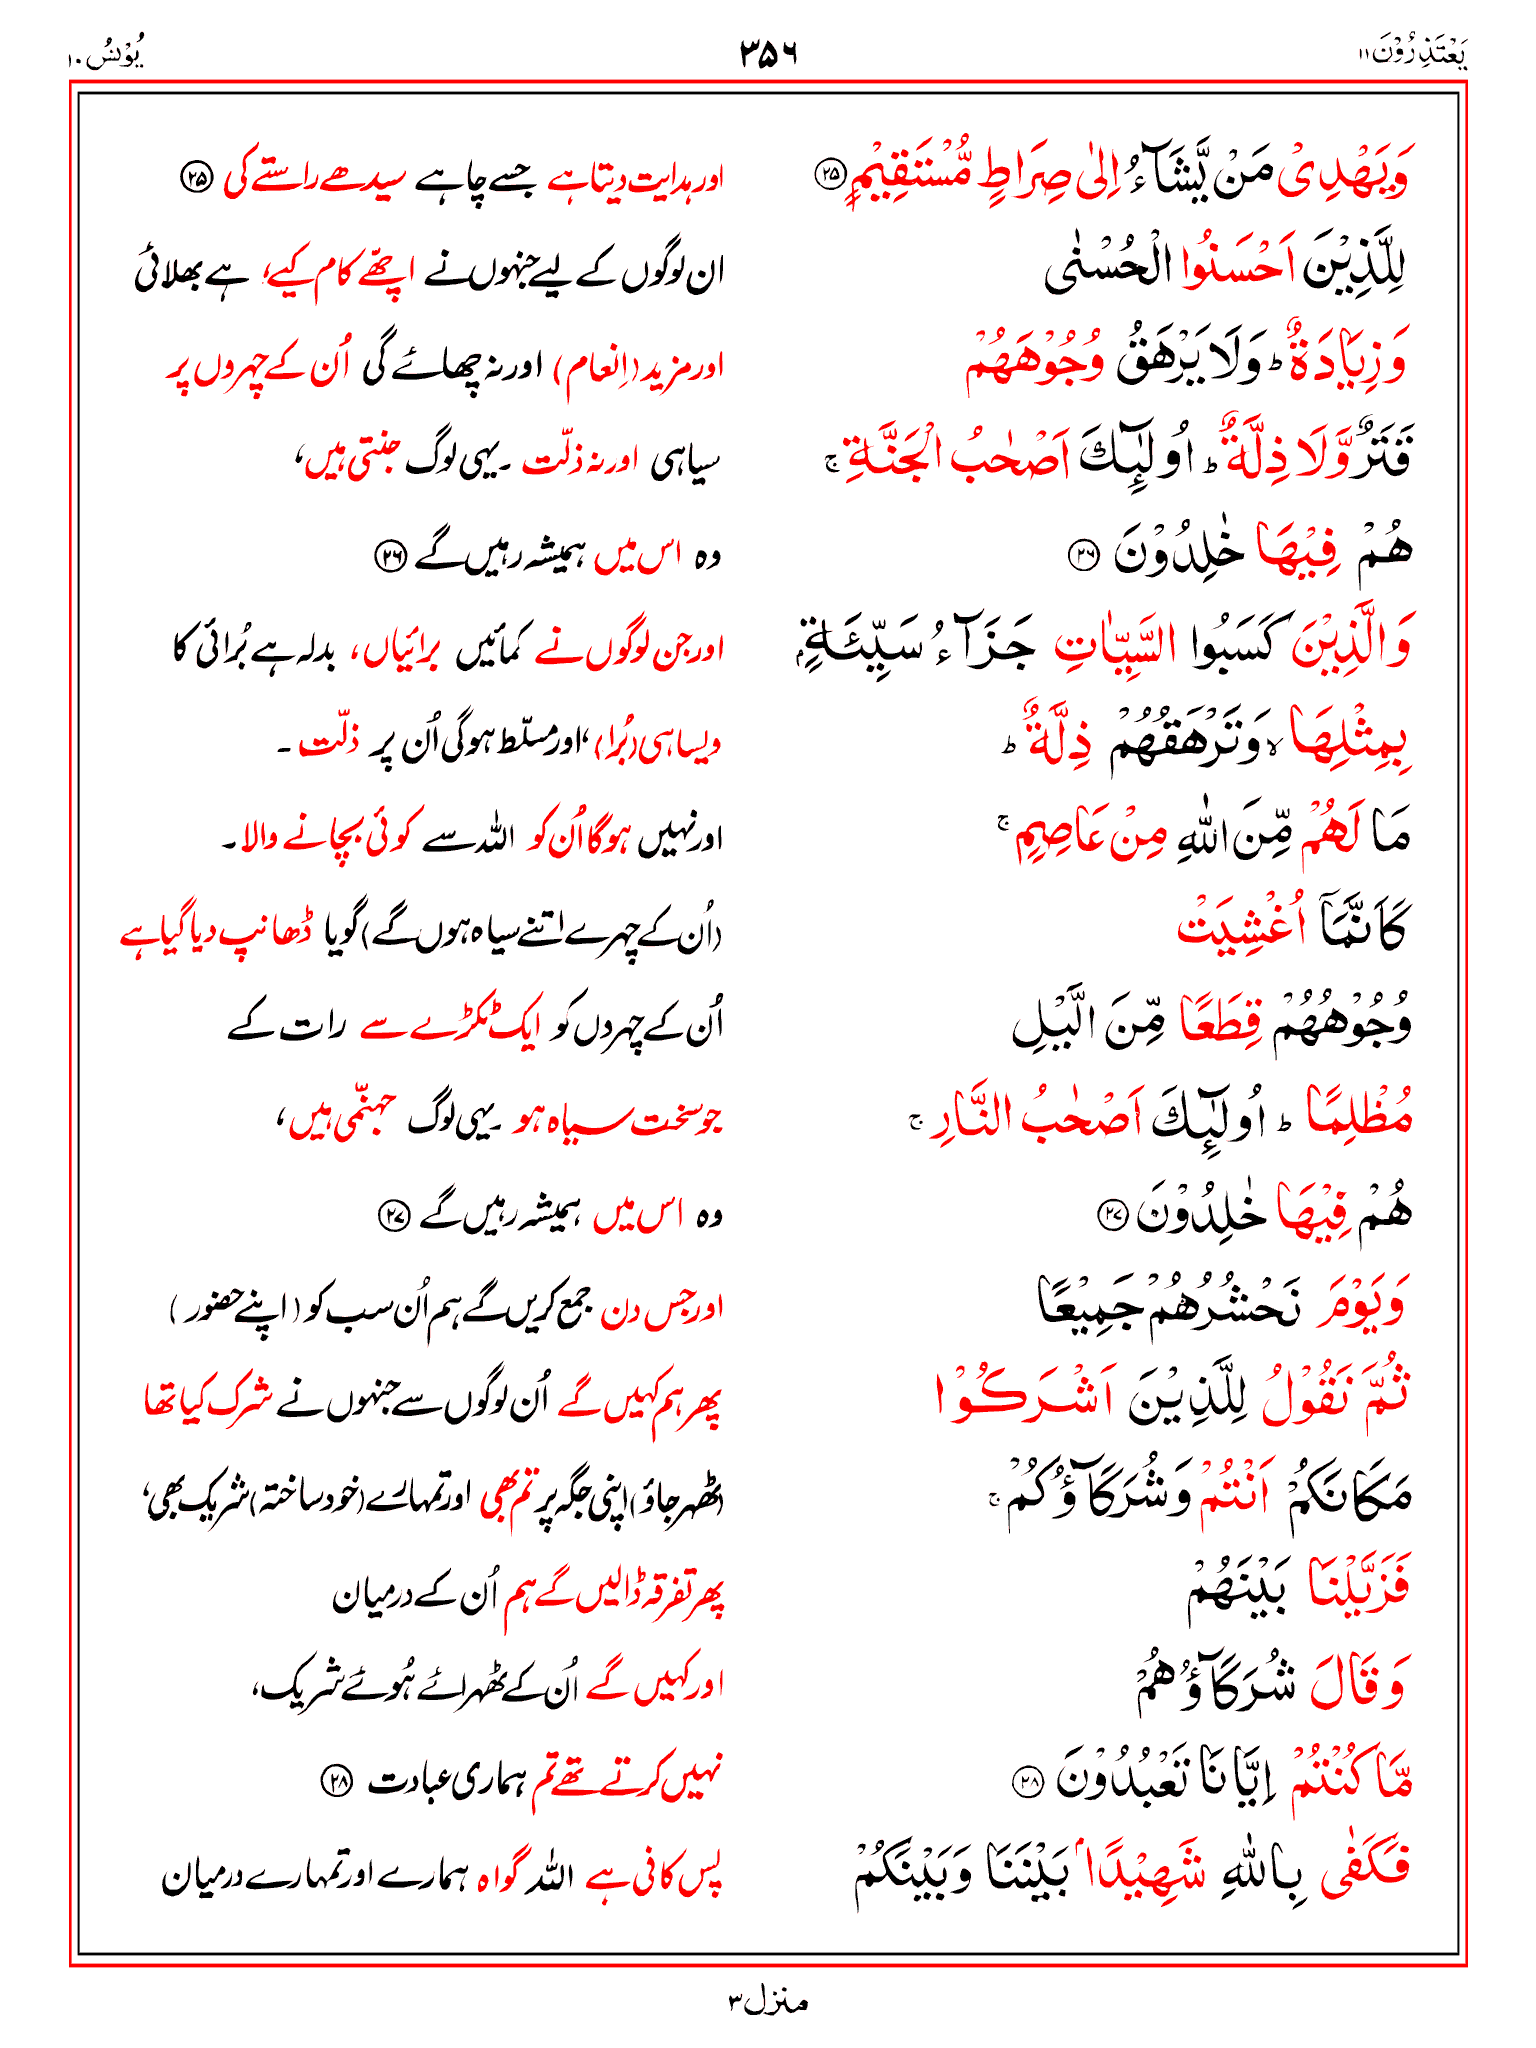 یَعْتَذِرُوْنَ ۱۱
۳۵۶
یُوْنُسُ ۱۰
وَیَهْدِیْ مَنْ یَّشَآءُ اِلٰی صِرَاطٍ مُّسْتَقِیْمٍ ﴿۲۵﴾
اور ہدایت دیتا ہے جسے چاہے سیدھے راستے کی ﴿۲۵﴾
لِلَّذِیْنَ اَحْسَنُوا الْحُسْنٰی
ان لوگوں کے لیے جنہوں نے اچھّے کام کیے، ہے بھلائی
وَزِیَادَةٌ ؕ وَلَا یَرْهَقُ وُجُوْهَهُمْ
اور مزید (اِنعام) اور نہ چھائے گی اُن کے چہروں پر
قَتَرٌ وَّلَا ذِلَّةٌ ؕ اُولٰٓئِكَ اَصْحٰبُ الْجَنَّةِ ۚ
سیاہی اور نہ ذلّت ۔ یہی لوگ جنتی ہیں،
هُمْ فِیْهَا خٰلِدُوْنَ ﴿۲۶﴾
وہ اس میں ہمیشہ رہیں گے ﴿۲۶﴾
وَالَّذِیْنَ كَسَبُوا السَّیِّاٰتِ جَزَآءُ سَیِّئَةٍۭ
اور جن لوگوں نے کمائیں برائیاں، بدلہ ہے بُرائی کا
بِمِثْلِهَا ۙ وَتَرْهَقُهُمْ ذِلَّةٌ ؕ
ویسا ہی (بُرا)، اور مسلّط ہوگی اُن پر ذلّت ۔
مَا لَهُمْ مِّنَ اللّٰهِ مِنْ عَاصِمٍ ۚ
اور نہیں ہوگا اُن کو اللہ سے کوئی بچانے والا ۔
كَاَنَّمَاۤ اُغْشِیَتْ
(اُن کے چہرے اتنے سیاہ ہوں گے) گویا ڈھانپ دیا گیا ہے
وُجُوْهُهُمْ قِطَعًا مِّنَ الَّیْلِ
اُن کے چہروں کو ایک ٹکڑے سے رات کے
مُظْلِمًا ؕ اُولٰٓئِكَ اَصْحٰبُ النَّارِ ۚ
جو سخت سیاہ ہو ۔ یہی لوگ جہنّمی ہیں،
هُمْ فِیْهَا خٰلِدُوْنَ ﴿۲۷﴾
وہ اس میں ہمیشہ رہیں گے ﴿۲۷﴾
وَیَوْمَ نَحْشُرُهُمْ جَمِیْعًا
اور جس دن جمع کریں گے ہم اُن سب کو (اپنے حضور)
ثُمَّ نَقُوْلُ لِلَّذِیْنَ اَشْرَكُوْا
پھر ہم کہیں گے اُن لوگوں سے جنہوں نے شرک کیا تھا
مَكَانَكُمْ اَنْتُمْ وَشُرَكَآؤُكُمْ ۚ
(ٹھہر جاؤ) اپنی جگہ پر تم بھی اور تمہارے (خود ساختہ) شریک بھی،
فَزَیَّلْنَا بَیْنَهُمْ
پھر تفرقہ ڈالیں گے ہم اُن کے درمیان
وَقَالَ شُرَكَآؤُهُمْ
اور کہیں گے اُن کے ٹھہرائے ہُوئے شریک،
مَّا كُنْتُمْ اِیَّانَا تَعْبُدُوْنَ ﴿۲۸﴾
نہیں کرتے تھے تم ہماری عبادت ﴿۲۸﴾
فَكَفٰی بِاللّٰهِ شَهِیْدًۢا بَیْنَنَا وَبَیْنَكُمْ
پس کافی ہے اللہ گواہ ہمارے اور تمہارے درمیان
منزل ۳